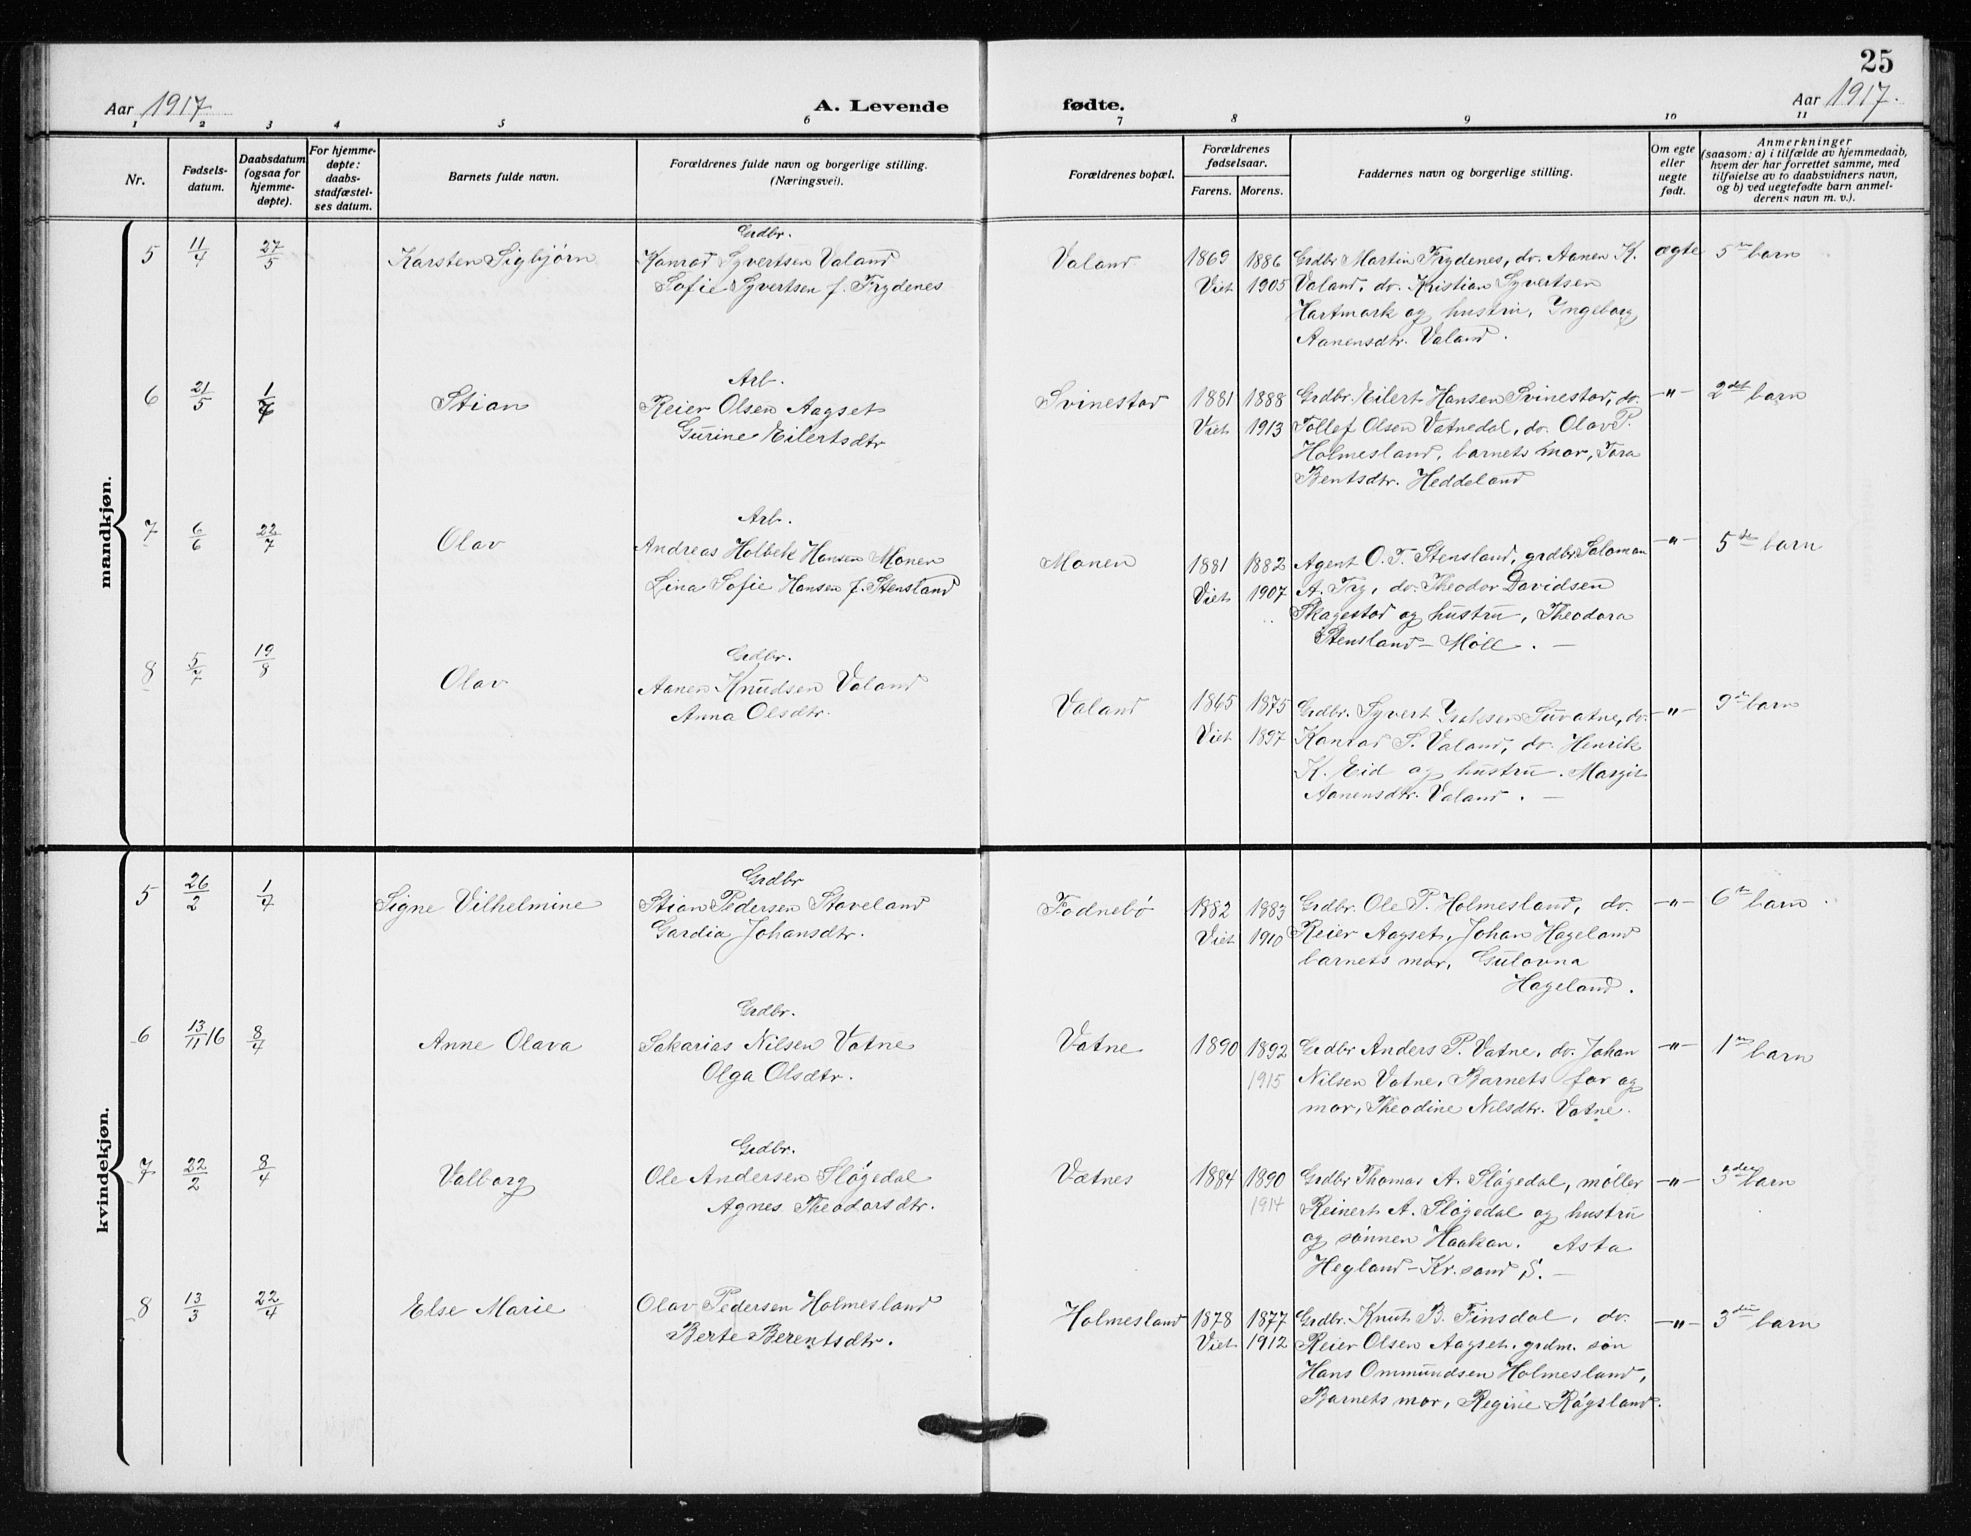 25
Aar 1917
A. Levende
fødte.
Aar 1917.
1 2 3 4 5 6 7 8 9 10 11
Nr.
Fødsels-
datum.
Daabsdatum
(ogsaa for
hjemme-
døpte).
For hjemme-
døpte:
daabs-
stadfæstel-
ses datum.
Barnets fulde navn.
Forældrenes fulde navn og borgerlige stilling.
(Næringsvei).
Forældrenes bopæl.
Forældrenes
fødselsaar.
Farens. Morens.
Faddernes navn og borgerlige stilling.
Om egte
eller
uegte
født.
Anmerkninger
(saasom: a) i tilfælde av hjemmedaab,
hvem der har forrettet samme, med
tilføielse av to daabsvidners navn,
og b) ved uegtefødte barn anmel-
derens navn m. v.).
mandkjøn.
5 11/4 27/5 Karsten Sigbjørn
Grdbr.
Konrad Syvertsen Valand
Sofie Syvertsen f. Frydenes
Valand
1869 1886
Viet 1905
Grdbr Martin Frydenes, do. Aanen K.
Valand, do. Kristian Syvertsen
Hartmark og hustru, Ingeborg
Aanensdtr. Valand.
ægte
5te barn
6 21/5 1/7 Stian
Arb.
Reier Olsen Aagset
Gurine Eilertsdtr
Svinestad
1881 1888
Viet 1913
Grdbr. Eilert Hansen Svinestad, do.
Tollef Olsen Vatnedal, do. Olav P.
Holmesland, barnets mor, Tora
Bentsdtr. Heddeland
-"-
2det barn
7 6/6 22/7 Olav
Arb.
Andreas Holbek Hansen Monen
Lina Sofie Hansen f. Stensland
Monen
1881 1882
Viet 1907
Agent O. T. Stensland, grdbr. Salomon
A. Try, do. Theodor Davidsen
Skagestad og hustru, Theodora
Stensland - Møll. -
-"-
5te barn
8 5/7 19/8 Olav
Grdbr.
Aanen Knudsen Valand
Anna Olsdtr.
Valand
1865 1875
Viet 1897
Grdbr. Syvert Isaksen Suvatne, do.
Konrad S. Valand, do. Henrik
K. Eid og hustru. Margit
Aanensdtr. Valand. -
-"-
9de barn
kvindekjøn.
5 26/2 1/4 Signe Vilhelmine
Grdbr
Stian Pedersen Staveland
Gardia Johansdtr.
Fodnebö
1882 1883
Viet 1910
Grdbr. Ole P. Holmesland, do.
Reier Aagset, Johan Hageland
barnets mor, Gulovna
Hageland.
-"-
6te barn.
6 13/11 16 8/4 Anne Olava
Grdbr.
Sakarias Nilsen Vatne
Olga Olsdtr.
Vatne
1890 1892
1915
Grdbr Anders P. Vatne, do. Johan
Nilsen Vatne, Barnets far og
mor, Theodine Nilsdtr. Vatne.
-"-
1ste barn
7 22/2 8/4 Valborg
Grdbr.
Ole Andersen Sløgedal
Agnes Theodorsdtr.
Vatnes
1884 1890
1914
Grdbr Thomas A. Sløgedal, møller
Reinert A. Sløgedal og hustru
og sønnen Haakon. Asta
Hegland - Kr.sand S. -
-"-
3die barn
8 13/3 22/4 Else Marie
Olav Pedersen Holmesland
Berte Berentsdtr.
Holmesland
1878 1877
Viet 1912
Grdbr. Knut B. Finsdal, do.
Reier Olsen Aagset, grdm. søn
Hans Ommundsen Holmesland,
Barnets mor, Regine Røysland.
-"-
3die barn